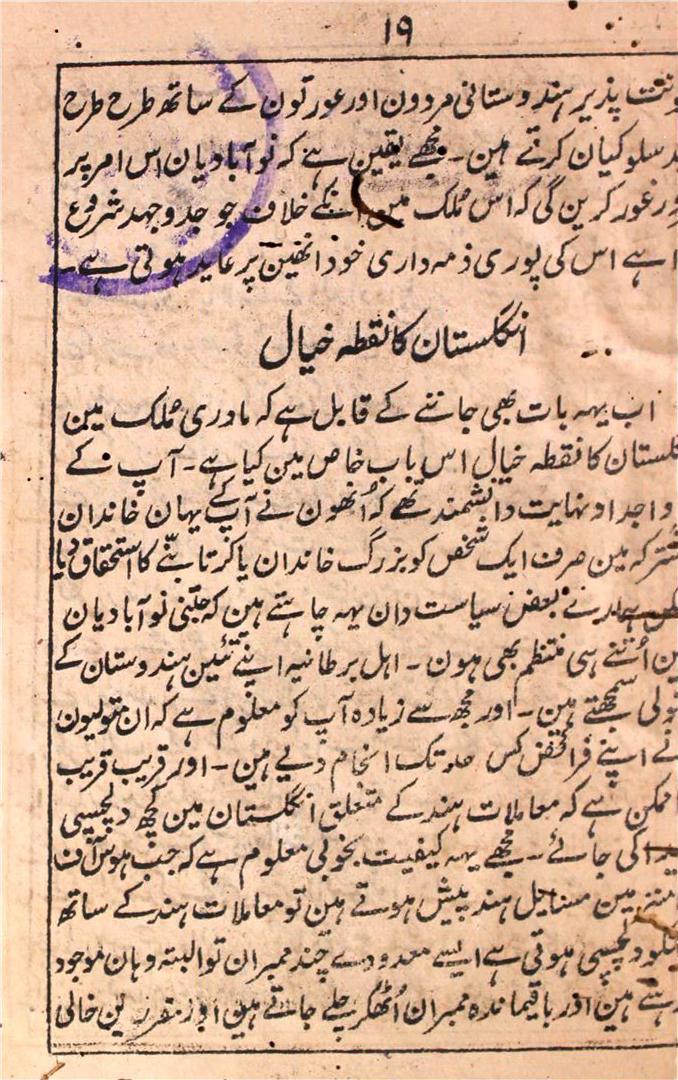 ۱۹
پذیر ہندوستانی مردون اور عورتون کے ساتھ طرح طرح
سلوکیان کرتے ہین۔ مجھے یقین ہے کہ نوآبادیان اس امر پر
غور کرین گی کہ اس مُلک مین خلاف جو جدوجہد شروع
ہے اس کی پوری ذمہ داری خود انھین پر عاید ہوتی ہے۔
انگلستان کا نقطہ خیال
اب یہہ بات بھی جاننے کے قابل ہے کہ مادری مُلک مین
کا نقطہ خیال اس باب خاص مین کیا ہے۔ آپ کے
واجداد نہایت دانشمند تھے کہ اُنھون نے آپ کے یہان خاندان
مین صرف ایک شخص کو بزرگ خاندان یا کرتا بننے کا استحقاق دیا
بعض سیاست دان یہہ چاہتے ہین کہ جتنی نوآبادیان
اُتنے ہی منتظم بھی ہون۔ اہل برطانیہ اپنے تئین ہندوستان کے
سمجھتے ہین۔ اور مجھ سے زیادہ آپ کو معلوم ہے کہ ان متولیون
نے اپنے فرائض کس حد تک انجام دیے ہین۔ اور قریب قریب
ممکن ہے کہ معاملات ہند کے متعلق انگلستان مین کچھ دلچسپی
کی جائے۔ مجھے یہہ کیفیت بخوبی معلوم ہے کہ جب ہوس آف
مین مسایل ہند پیش ہوتے ہین تو معاملات ہند کے ساتھ
دلچسپی ہوتی ہے ایسے معدودے چند ممبران تو البتہ وہان موجود
ہین اور باقیماندہ ممبران اُٹھکر چلے جاتے ہین اور مقررین خالی